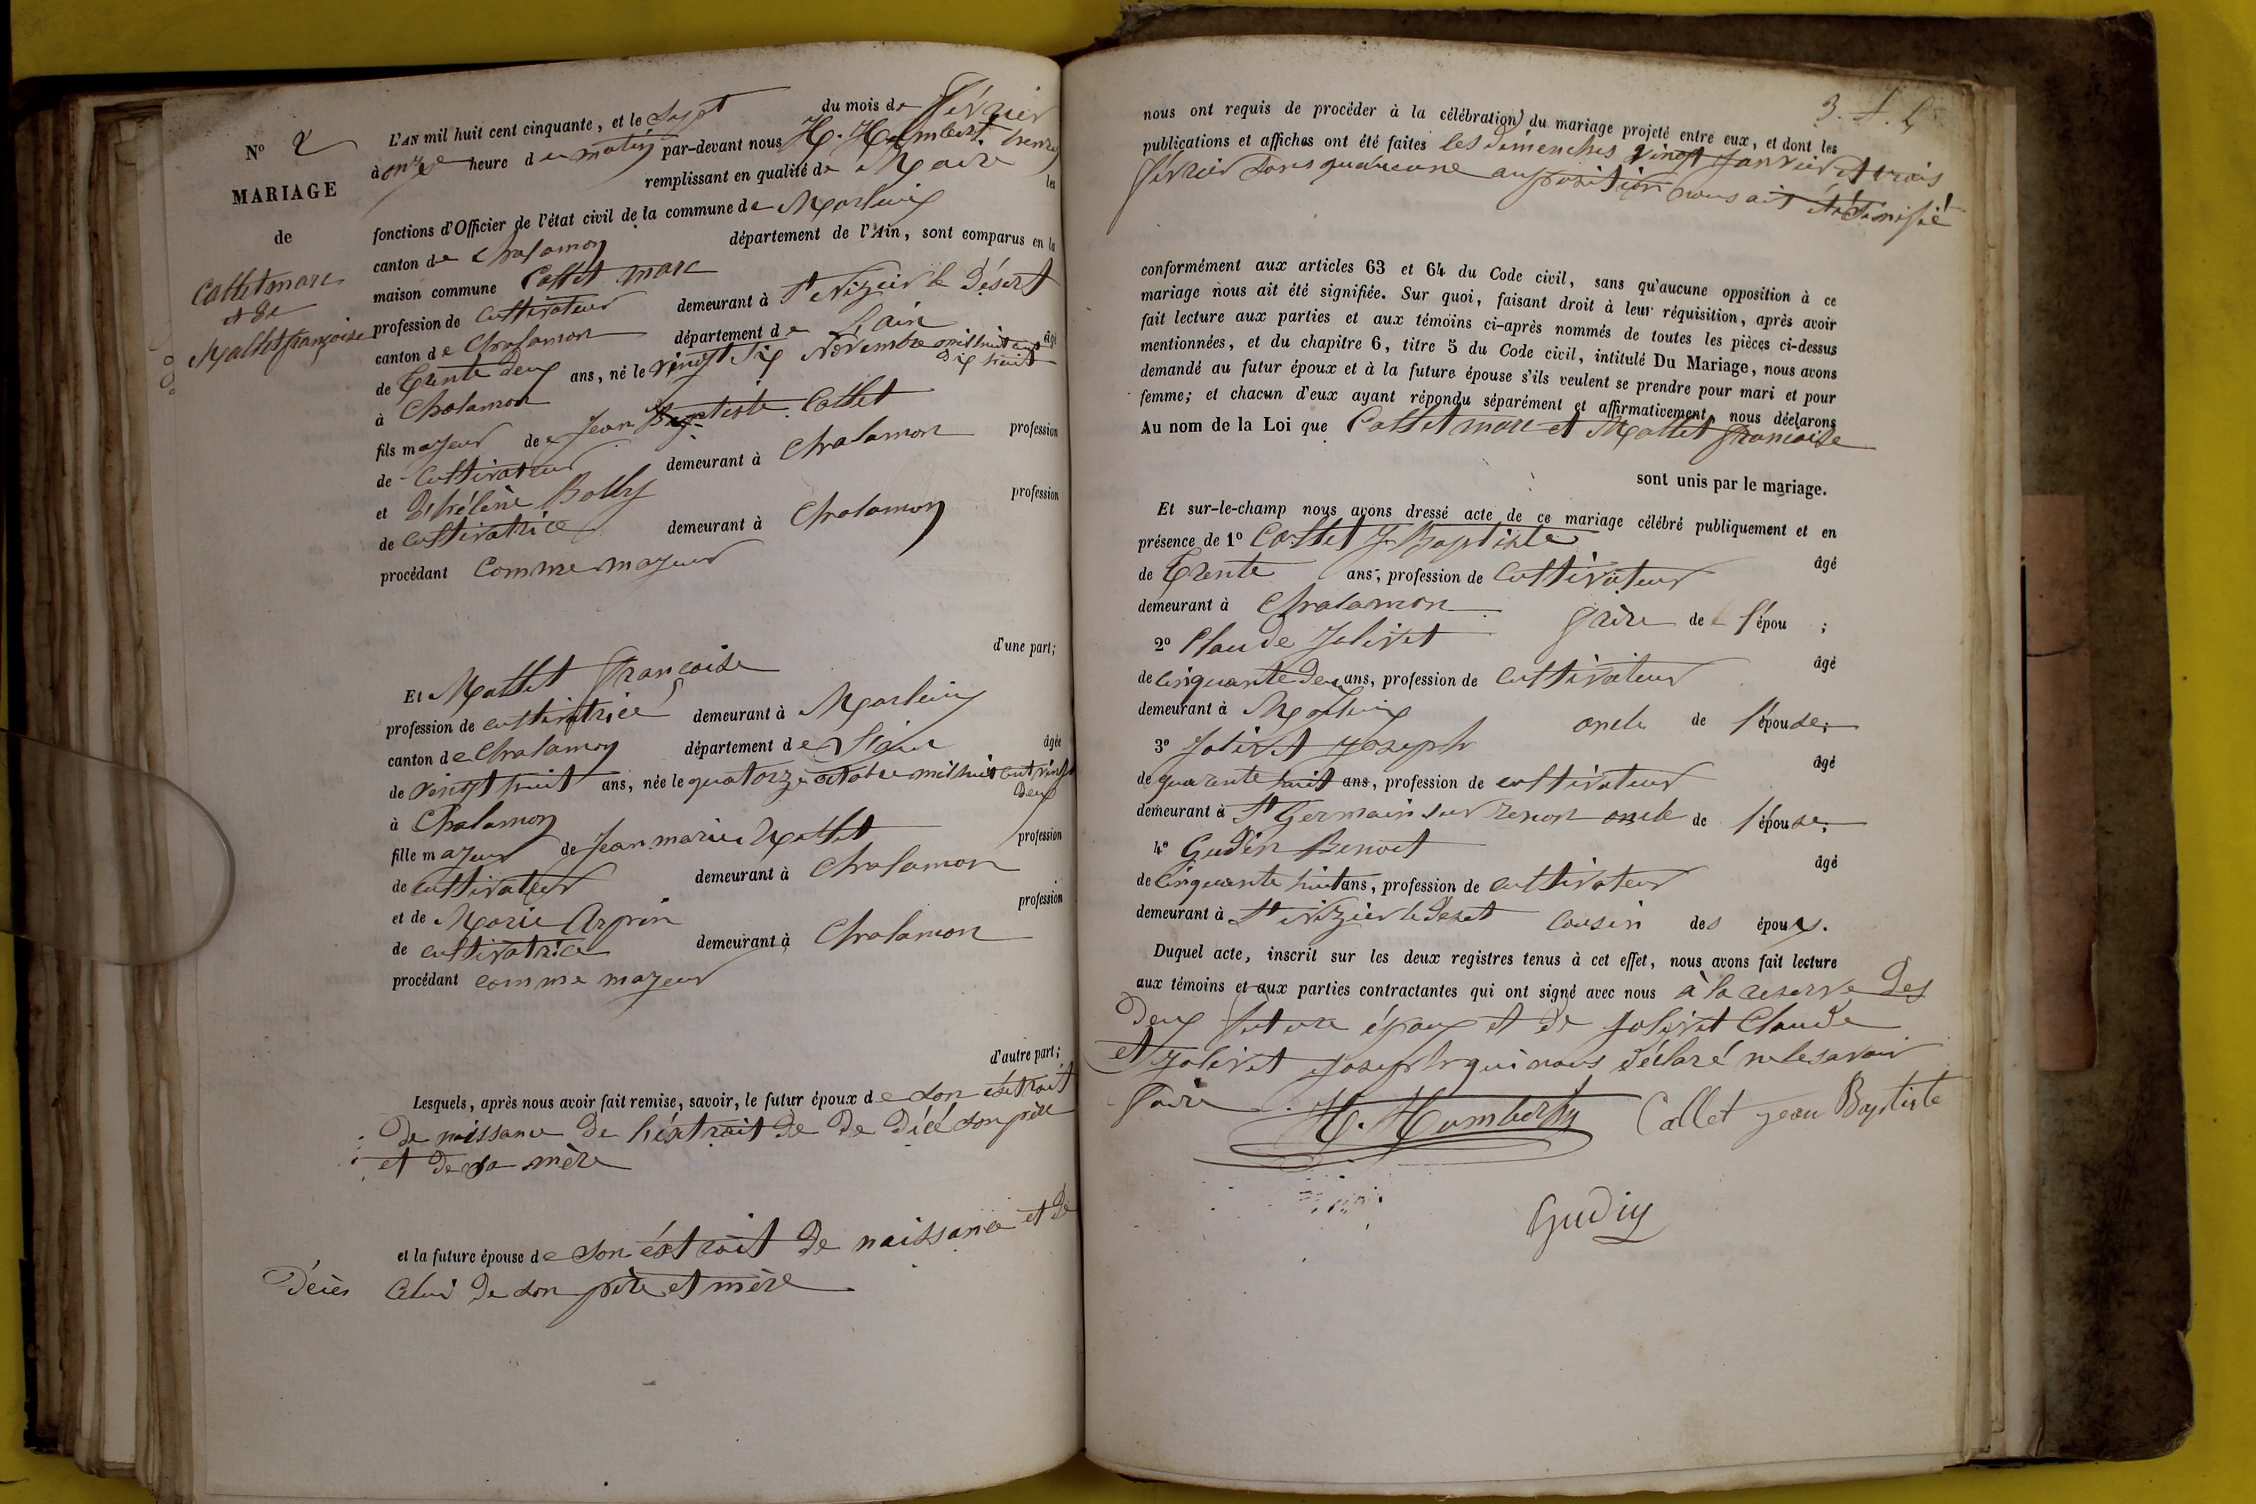 N° 2
MARIAGE
de
Callet marc
et de
Mallet françoise
L'AN mil huit cent cinquante, et le Sept du mois de Février
à onze heure du matin par-devant nous H. Humbert
remplissant en qualité de Maire les
fonctions d'Officier de l'état civil de la commune de Marlieux
canton de Chalamon département de l'Ain, sont comparus en la
maison commune Callet marc
profession de Cultivateur demeurant à St Nizier le Désert
canton de Chalamon département de L'ain âgé
de Trente deux ans, né le vingt Six Novembre mil huit cent
Dix huit
à Chalamon
fils majeur de Jean Baptiste Callet profession
de Cultivateur demeurant à Chalamon
et D'hélène Bolly profession
de Cultivatrice demeurant à Chalamon
procédant Comme majeur
d'une part;
Et Mallet françoise
profession de cultivatrice demeurant à Marlieux
canton de Chalamon département de l'ain âgée
de vingt huit ans, née le quatorze octobre mil huit cent vingt
Deux
à Chalamon
fille majeur de Jean marie Mallet profession
de Cultivateur demeurant à Chalamon
et de Marie Arpin profession
de cultivatrice demeurant à Chalamon
procédant comme majeur
d'autre part;
Lesquels, après nous avoir fait remise, savoir, le futur époux de son éxtrait
de naissance de l'éxtrait de De Décé son père
et de sa mère
et la future épouse de son éxtrait de naissance et de
Décès Celui de son père et mère
3. f.
nous ont requis de procéder à la célébration du mariage projeté entre eux, et dont les
publications et affiches ont été faites les Dimenches vingt Janvier et trois
février sans qu'aucune aupposition nous ait été Sinifié
conformément aux articles 63 et 64 du Code civil, sans qu'aucune opposition à ce
mariage nous ait été signifiée. Sur quoi, faisant droit à leur réquisition, après avoir
fait lecture aux parties et aux témoins ci-après nommés de toutes les pièces ci-dessus
mentionnées, et du chapitre 6, titre 5 du Code civil, intitulé Du Mariage, nous avons
demandé au futur époux et à la future épouse s'ils veulent se prendre pour mari et pour
femme; et chacun d'eux ayant répondu séparément et affirmativement, nous déclarons
Au nom de la Loi que Callet marc et Mallet françoise
sont unis par le mariage.
Et sur-le-champ nous avons dressé acte de ce mariage célébré publiquement et en
présence de 1° Callet J. Baptiste âgé
de Trente ans, profession de Cultivateur
demeurant à Chalamon frère de l'épou ;
2° Claude Jolivet âgé
de cinquante deux ans, profession de cultivateur
demeurant à Marlieux oncle de l'épouse;
3° Jolivet Joseph âgé
de quarante huit ans, profession de cultivateur
demeurant à St Germain sur renon oncle de l'épouse;
4° Gudin Benoit âgé
de Cinquante huit ans, profession de cultivateur
demeurant à St Nizier le Deset Cousin des époux.
Duquel acte, inscrit sur les deux registres tenus à cet effet, nous avons fait lecture
aux témoins et aux parties contractantes qui ont signé avec nous à la reserve Des
Deux future époux et de Jolivet Claude
et Jolivet Joseph qui nous déclaré ne le savoir
faire
H. Humbert Callet jean Baptiste
Gudin